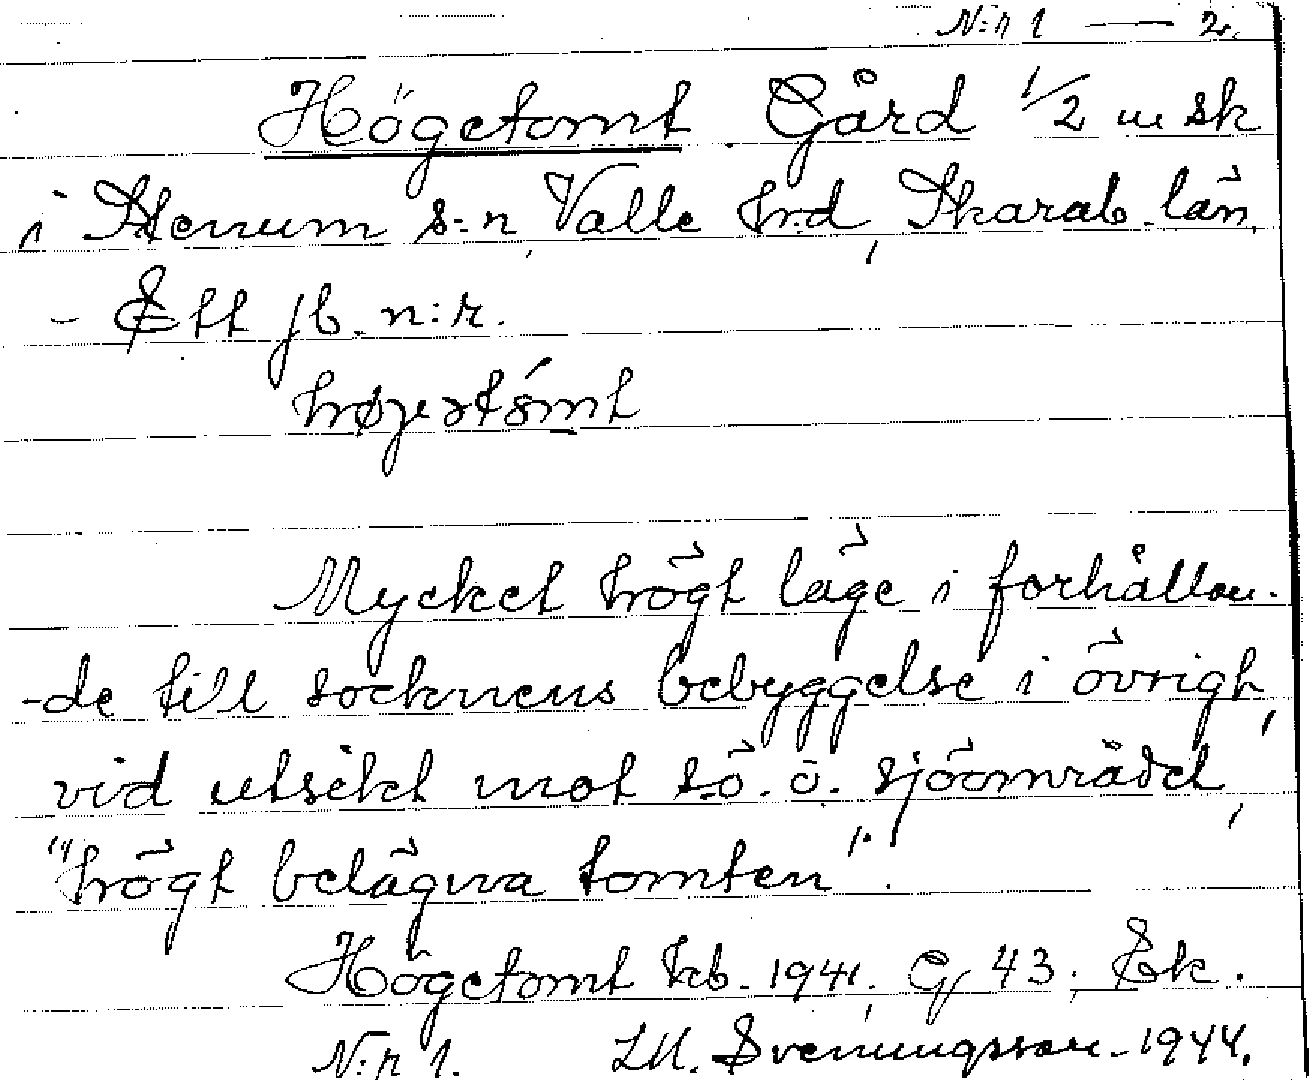 N:r 1 — 2.
Högetomt Gård 1/2 m sk
i Stenum s-n, Valle hrd, Skarab. län.
- Ett jb. n:r.
Mycket högt läge i förhållan-
-de till socknens bebyggelse i övrigt,
vid utsikt mot s.ö. ö. sjöområdet,
"högt belägna tomten".
Högetomt kb. 1941. G 43. Ek.
N:r 1. Sveningsson 1944.